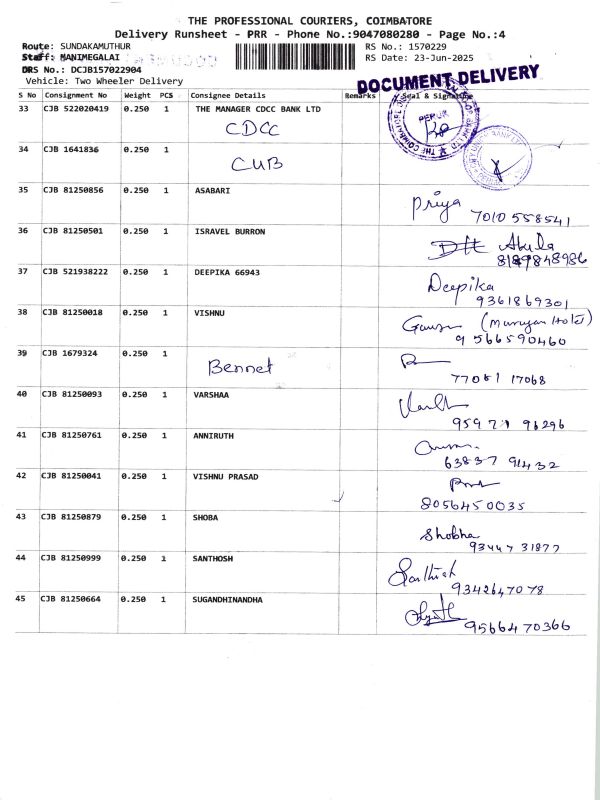 THE PROFESSIONAL COURIERS, COIMBATORE
Delivery Runsheet - PRR - Phone No.:9047080280 - Page No.:4
Route: SUNDAKAMUTHUR
RS No.: 1570229
Staff: MANIMEGALAI
RS Date: 23-Jun-2025
DRS No.: DCJB157022904
Vehicle: Two Wheeler Delivery
DOCUMENT DELIVERY
S No Consignment No Weight PCS Consignee Details Remarks Seal & Signature
33 CJB 522020419 0.250 1 THE MANAGER CDCC BANK LTD
CDCC
PERUR
34 CJB 1641836 0.250 1
CUB
35 CJB 81250856 0.250 1 ASABARI
Priya 7010 558541
36 CJB 81250501 0.250 1 ISRAVEL BURRON
37 CJB 521938222 0.250 1 DEEPIKA 66943
Deepika
9361869301
38 CJB 81250018 0.250 1 VISHNU
(Murugan Hotel)
9 566590460
39 CJB 1679324 0.250 1
Bennet
77081 17068
40 CJB 81250093 0.250 1 VARSHAA
95971 96296
41 CJB 81250761 0.250 1 ANNIRUTH
63837 91432
42 CJB 81250041 0.250 1 VISHNU PRASAD
8056450035
43 CJB 81250879 0.250 1 SHOBA
Shobha
93447 31877
44 CJB 81250999 0.250 1 SANTHOSH
9342647078
45 CJB 81250664 0.250 1 SUGANDHINANDHA
9566470366